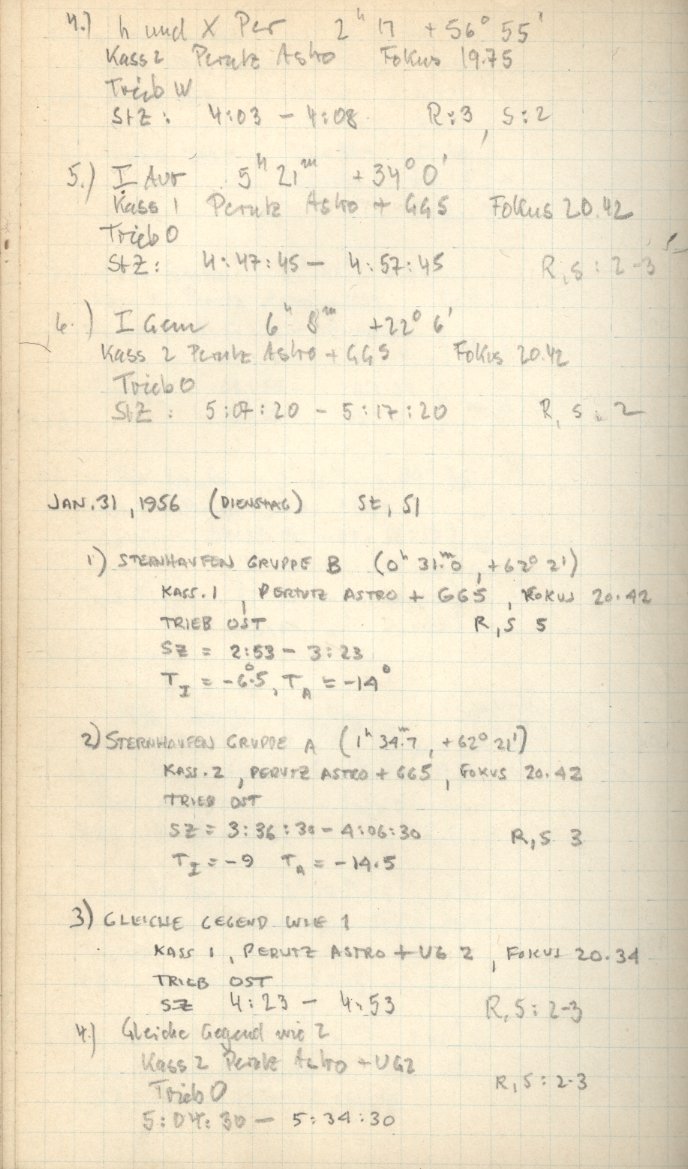 4.) h und χ Per 2ʰ 17 +56° 55'
Kass 2 Perutz Astro Fokus 19.75
Trieb W
StZ: 4:03 – 4:08 R:3, S:2
5.) I Aur 5ʰ 21ᵐ +34° 0'
Kass 1 Perutz Astro + GG5 Fokus 20.42
Trieb O
StZ: 4:47:45 – 4:57:45 R,S:2-3
6.) I Gem 6ʰ 8ᵐ +22° 6'
Kass 2 Perutz Astro + GG5 Fokus 20.42
Trieb O
StZ: 5:07:20 – 5:17:20 R,S:2
JAN. 31, 1956 (DIENSTAG) St, Sl
1) STERNHAUFEN GRUPPE B (0ʰ 31.ᵐ0, +62° 21')
KASS. 1, PERUTZ ASTRO + GG5, FOKUS 20.42
TRIEB OST R,S 5
SZ = 2:53 – 3:23
T_I = -6°.5, T_A = -14°
2) STERNHAUFEN GRUPPE A (1ʰ 34.ᵐ7, +62° 21')
KASS. 2, PERUTZ ASTRO + GG5, FOKUS 20.42
TRIEB OST
SZ = 3:36:30 – 4:06:30 R,S 3
T_I = -9 T_A = -14.5
3) GLEICHE GEGEND WIE 1
KASS 1, PERUTZ ASTRO + UG 2, FOKUS 20.34
TRIEB OST
SZ 4:23 – 4:53 R,S:2-3
4.) Gleiche Gegend wie 2
Kass 2 Perutz Astro + UG2
Trieb O R,S:2-3
5:04:30 – 5:34:30